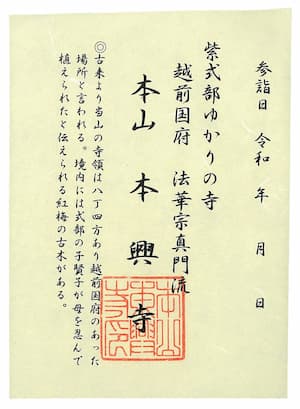 参詣日 令和 年 月 日
紫式部ゆかりの寺
越前国府 法華宗真門流
本山 本興寺
◎古来より当山の寺領は八丁四方あり越前国府のあった
場所と言われる。境内には式部の子賢子が母を忍んで
植えられたと伝えられる紅梅の古木がある。